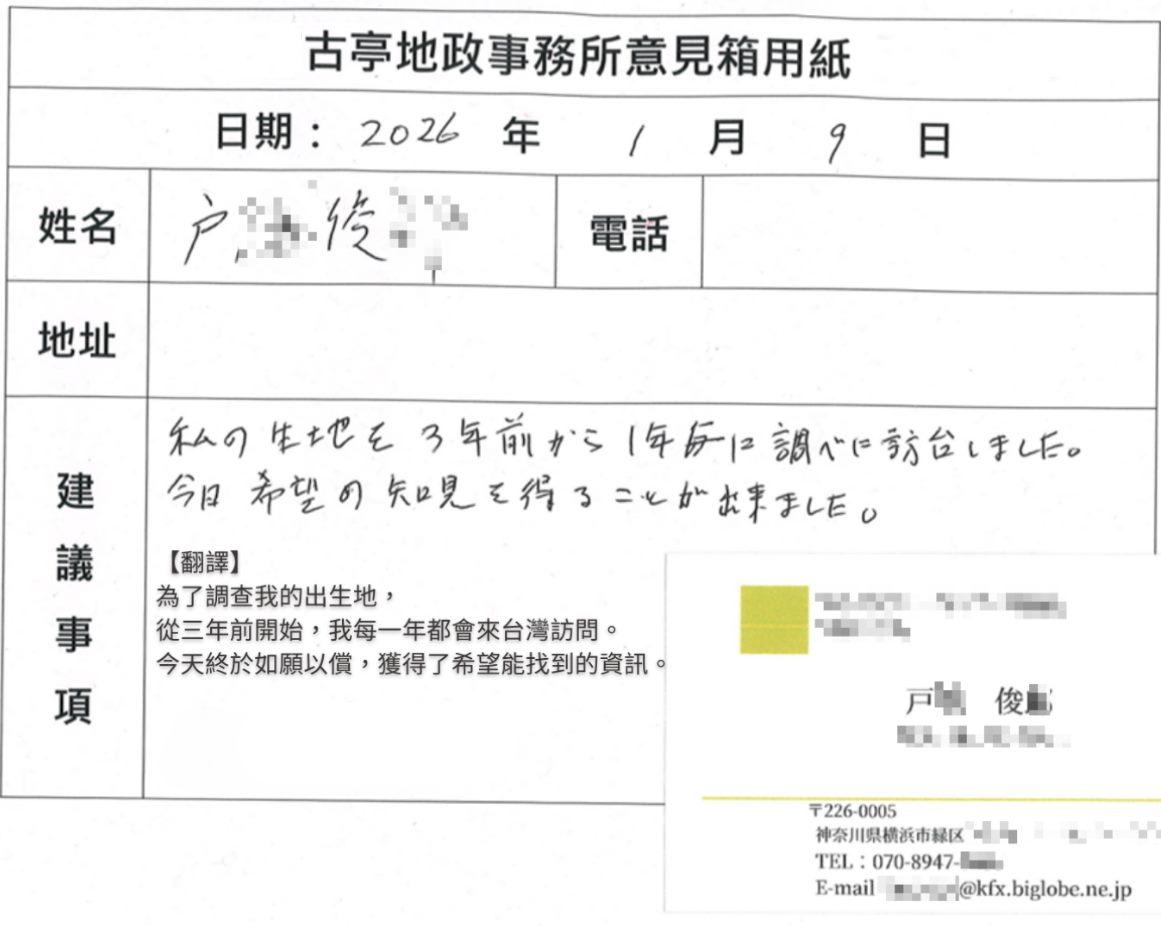 古亭地政事務所意見箱用紙
日期： 2026 年 1 月 9 日
姓名 戸 俊 電話
地址
建議事項
私の生地を3年前から1年毎に調べに訪台しました。
今日希望の知見を得ることが出来ました。
【翻譯】
為了調查我的出生地，
從三年前開始，我每一年都會來台灣訪問。
今天終於如願以償，獲得了希望能找到的資訊。
戸 俊
〒226-0005
神奈川県横浜市緑区
TEL：070-8947-
E-mail @kfx.biglobe.ne.jp